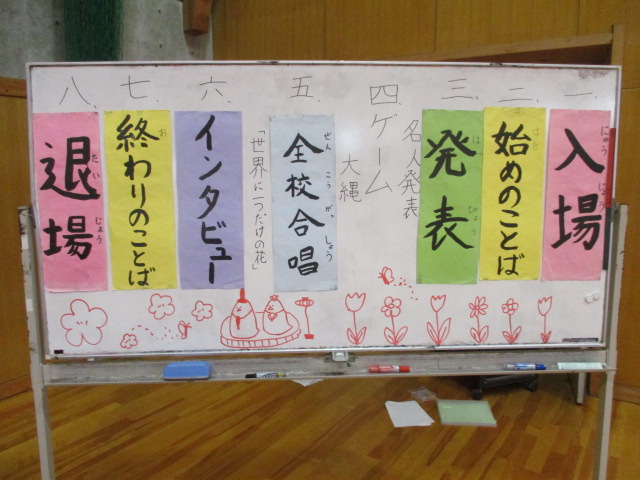 一、
入場
にゅうじょう
二、
始めのことば
はじ
三、
発表
はっぴょう
名人発表
四、
ゲーム
大縄
五、
全校合唱
ぜんこうがっしょう
「世界に一つだけの花」
六、
インタビュー
七、
終わりのことば
お
八、
退場
たいじょう